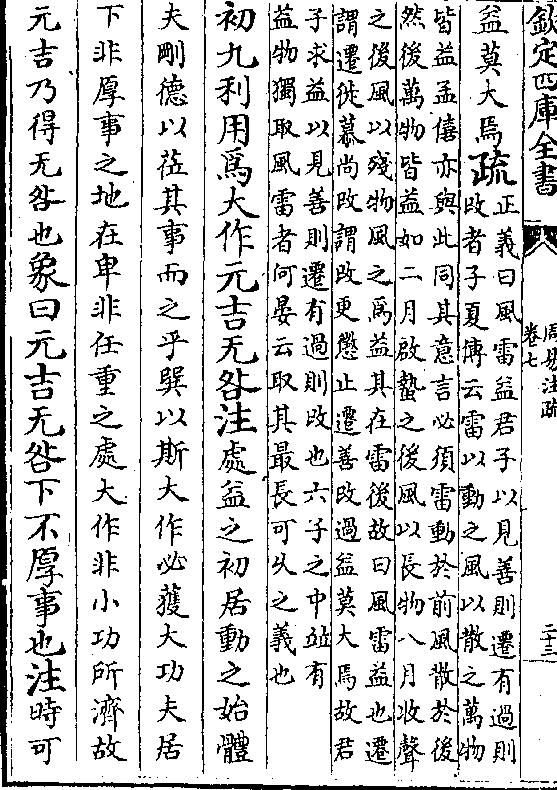 欽定四庫全書
周易注疏
卷七
二十三
益莫大焉疏
正義曰風雷益君子以見善則遷有過則
改者子夏傳云雷以動之風以散之萬物
皆益孟僖亦與此同其意言必須雷動於前風散於後
然後萬物皆益如二月啟蟄之後風以長物八月收聲
之後風以殘物風之為益其在雷後故曰風雷益也遷
謂遷徙慕尚改謂改更懲止遷善改過益莫大焉故君
子求益以見善則遷有過則改也六子之中並有
益物獨取風雷者何晏云取其最長可久之義也
初九利用爲大作元吉无咎注處益之初居動之始體
夫剛德以莅其事而之乎巽以斯大作必獲大功夫居
下非厚事之地在卑非任重之處大作非小功所濟故
元吉乃得无咎也象曰元吉无咎下不厚事也注時可